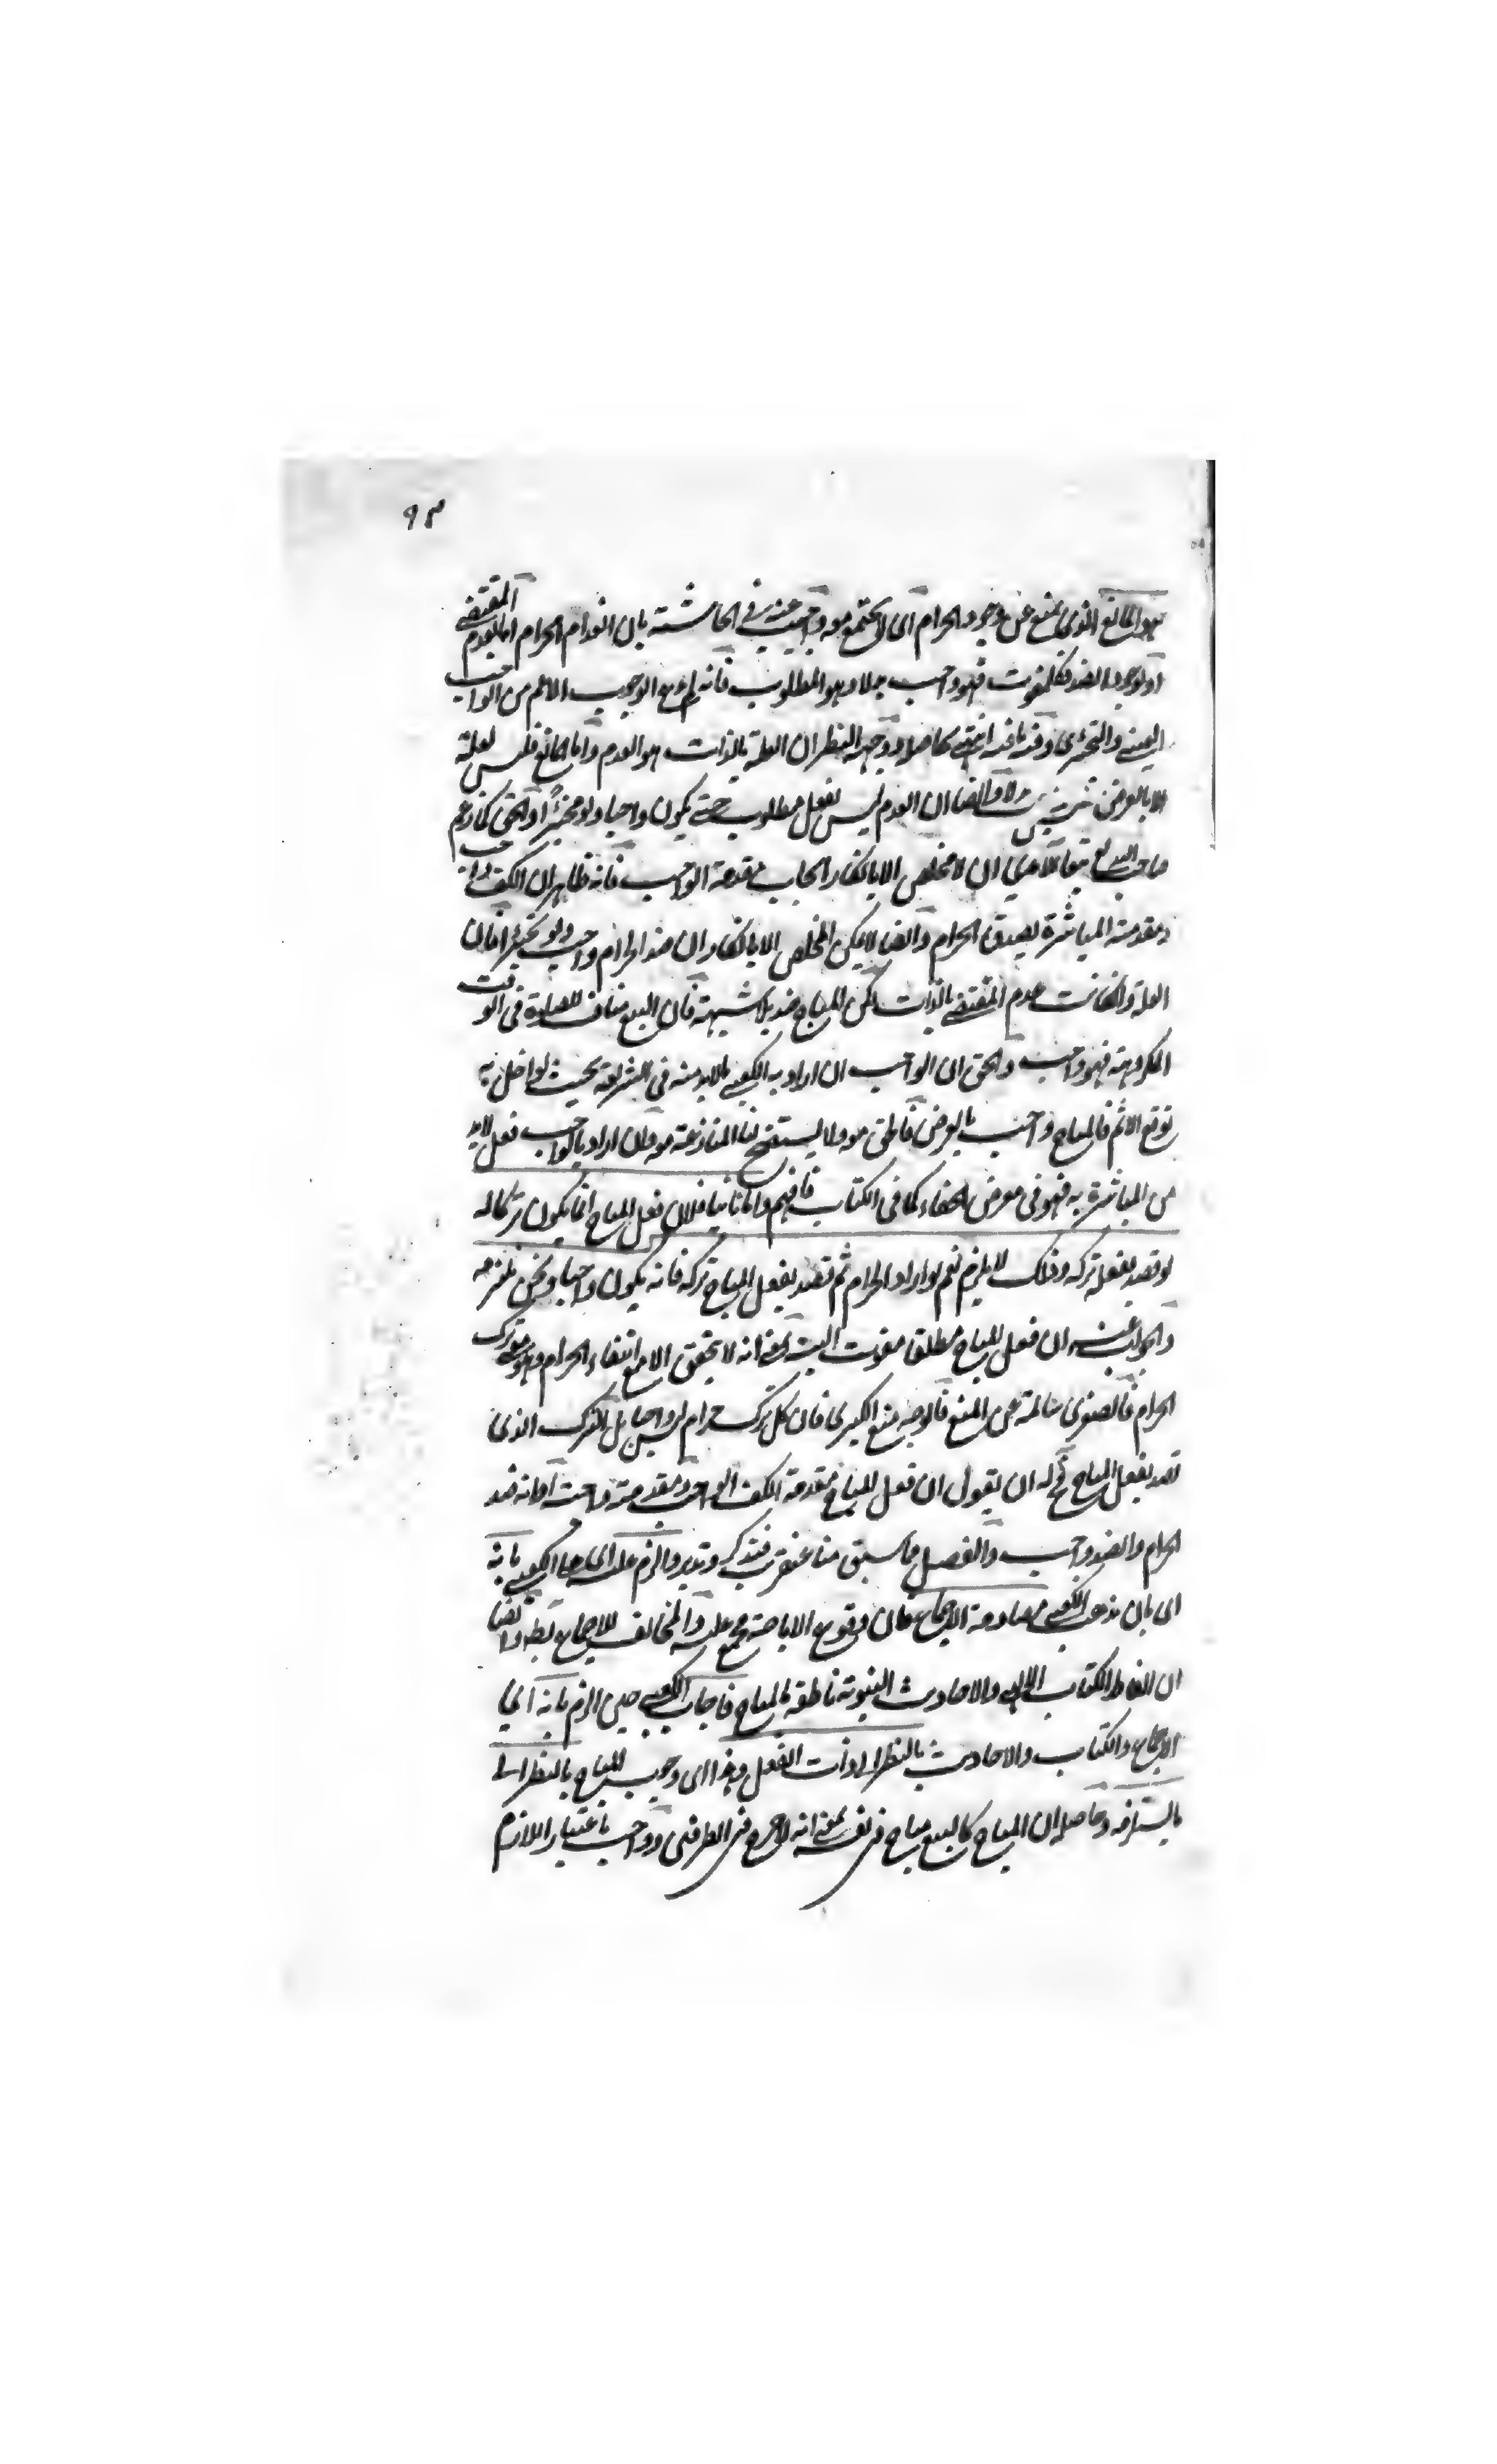 ٩٣
هو المانع الذي يمنع عن وجود الحرام اى لا يجتمع معه واجيب عنه في الحاشية بان انعدام الحرام اما لعدم المقتضى
او لوجود الضد فهو واجب وهو المطلوب فانه الوجوب الاعم من الواجب
العينى والتخييرى انتهى ووجه النظر ان العلة بالذات هو العدم واما المانع فليس لعلة
الا بالعرض وايضا ان العدم ليس بفعل مطلوب حتى يكون واجبا ولو مخيرا والحق كما زعم
صاحب البديع ان لا مخلص الا بانكار ايجاب مقدمة الواجب فانه ظاهر ان الكف واجب
ومقدمته المباشرة بضد الحرام وايضا لا يمكن المخلص الا بانكار ان ضد الحرام واجب ولو تخييرا فان
العلة وان كانت عدم المقتضى بالذات لكن المباح ضد بلا شبهة فان البيع مناف للصلوة فى الوقت
المكروهة فهو واجب والحق ان الواجب ان اراد به الكعبى ما لابد منه فى الشريعة بحيث لو اخل به
توقع الاثم فالمباح واجب بالعرض فالحق معه ولا يستقيم لنا المنازعة معه وان اراد بالواجب فعل لابد
من المباشرة به فهو فى معرض الخفاء كما فى الكتاب فافهم واما ثانيا فلان فعل المباح انما يكون تركا له
لو قصد بفعله تركه وذلك لا يلزم نعم لو اراد الحرام ثم قصد بفعل المباح تركه فانه يكون واجبا ونحن نلتزمه
والجواب عنه ان فعل المباح مطلقا مفوت البتة بمعنى انه لا يتحقق الا مع انتفاء الحرام وهو معنى ترك
الحرام فالصغرى سالمة عن المنع فالوجه منع الكبرى فان كل ترك حرام ليس واجبا بل الترك الذى
قصد بفعل المباح فح له ان يقول ان فعل المباح مقدمة الكف الواجب ومقدمته واجبة او انه ضد
الحرام والضد واجب والتفصيل ما سبق منا عنقريب فتذكر وتدبر والزم عليه اى على الكعبى بانه
اى بان مذهب الكعبى مصادمة الاجماع فان وقوع الاباحة مجمع عليه والمخالف للاجماع بط وايضا
ان الفاظ الكتاب الالهى والاحاديث النبوية ناطقة بالمباح فاجاب الكعبى حين الزم بانه اى
الاجماع والكتاب والاحاديث بالنظر الى ذات الفعل وهذا اى وجوب المباح بالنظر الى
ما يستلزمه وحاصله ان المباح كالبيع مباح فى نفسه بمعنى انه لا حرج فى الطرفين وواجب باعتبار اللازم